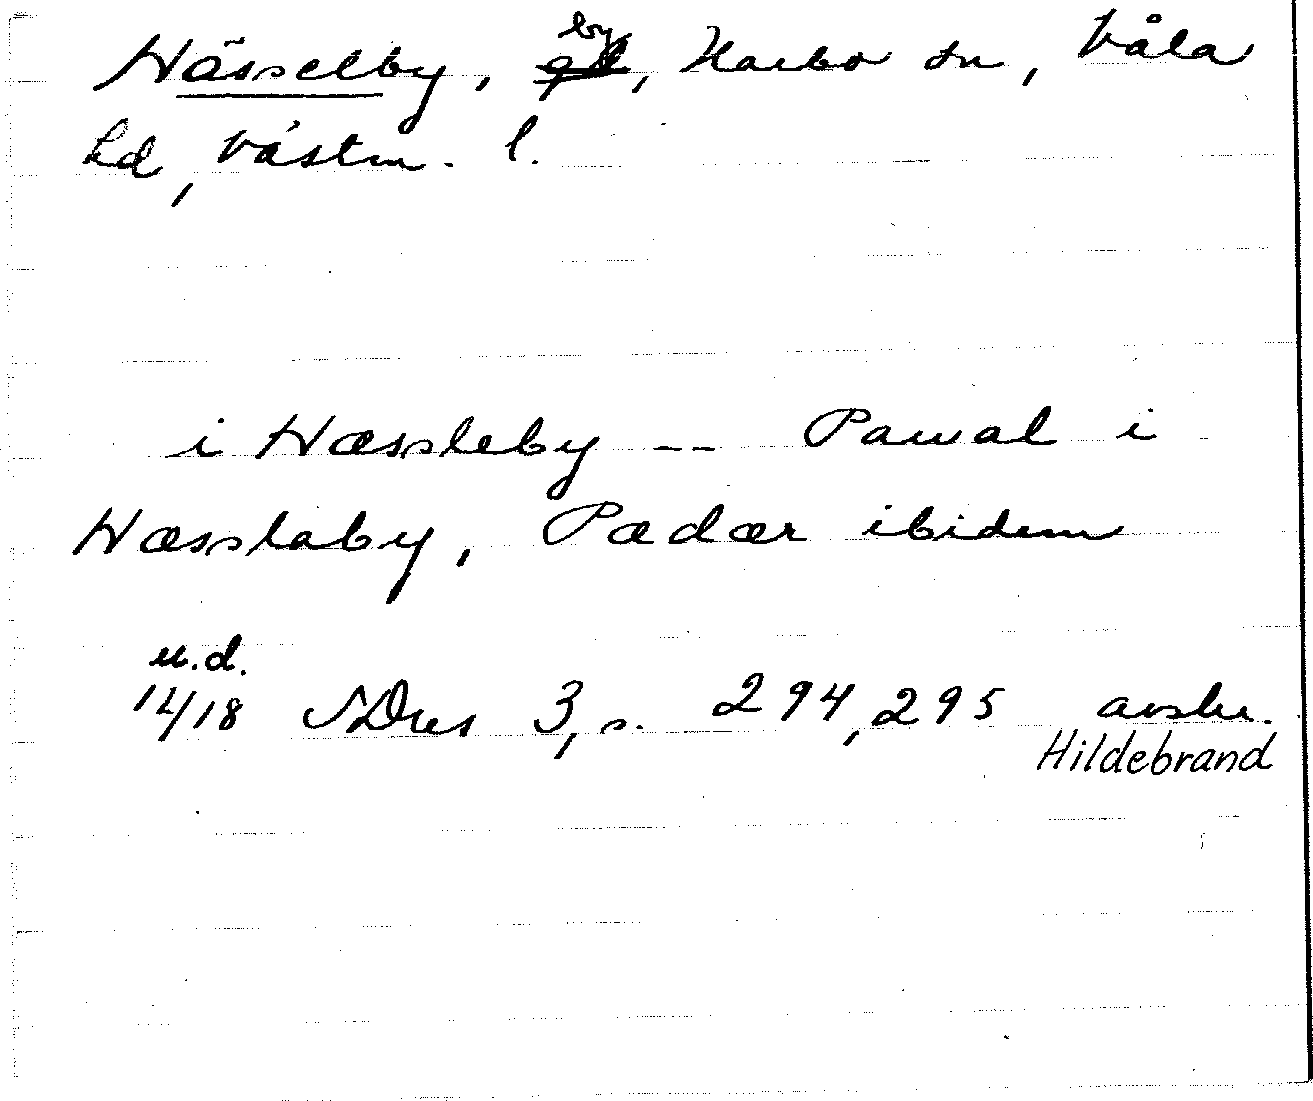 Hässelby, by, Harbo sn, Våla
hd, Västm. l.
i Hæssleby -- Pawal i
Hæsslaby, Pædær ibidem
u.d.
14/18 SDns 3, s. 294, 295 avskr.
Hildebrand